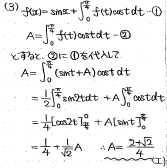 (3) f(x)= sinx + ∫₀^{π/4} f(t) cost dt …①
A = ∫₀^{π/4} f(t) cost dt …②
とすると、②に①を代入して
A = ∫₀^{π/4} (sint + A) cost dt
= 1/2 ∫₀^{π/4} sin2t dt + A ∫₀^{π/4} cost dt
= 1/4 [cos2t]_{π/4}^0 + A [sint]_0^{π/4}
= 1/4 + 1/√2 A ∴ A = (2+√2)/4